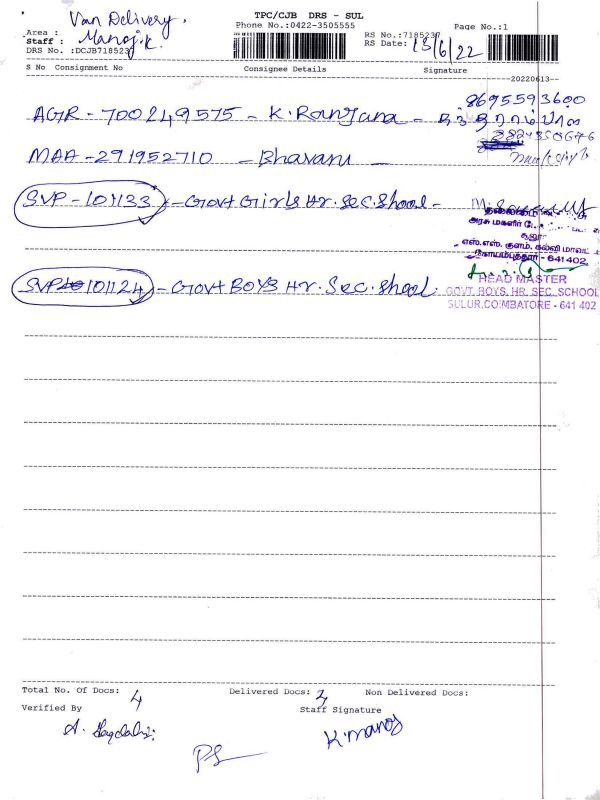 Van Delivery.
TPC/CJB DRS - SUL
Phone No.:0422-3505555
Page No.:1
Area :
Staff : Manoj.K.
DRS No. :DCJB7185237
RS No.:7185237
RS Date: 13/6/22
S No Consignment No Consignee Details Signature
20220613
8695593600
AGR - 700249575 - K. Ranjana -
MAA - 291952710 - Bhavani -
SVP - 101133 - Govt Girls Hr. Sec. Shool -
அரசு மகளிர்
எஸ்.எஸ். குளம். கல்வி மாவட்
கோயம்புத்தூர் - 641 402
SVP 101124 - Govt BOYS Hr. Sec. Shool.
HEAD MASTER
GOVT. BOYS. HR. SEC. SCHOOL
SULUR.COIMBATORE - 641 402
Total No. Of Docs: 4 Delivered Docs: Non Delivered Docs:
Verified By Staff Signature
K. Manoj